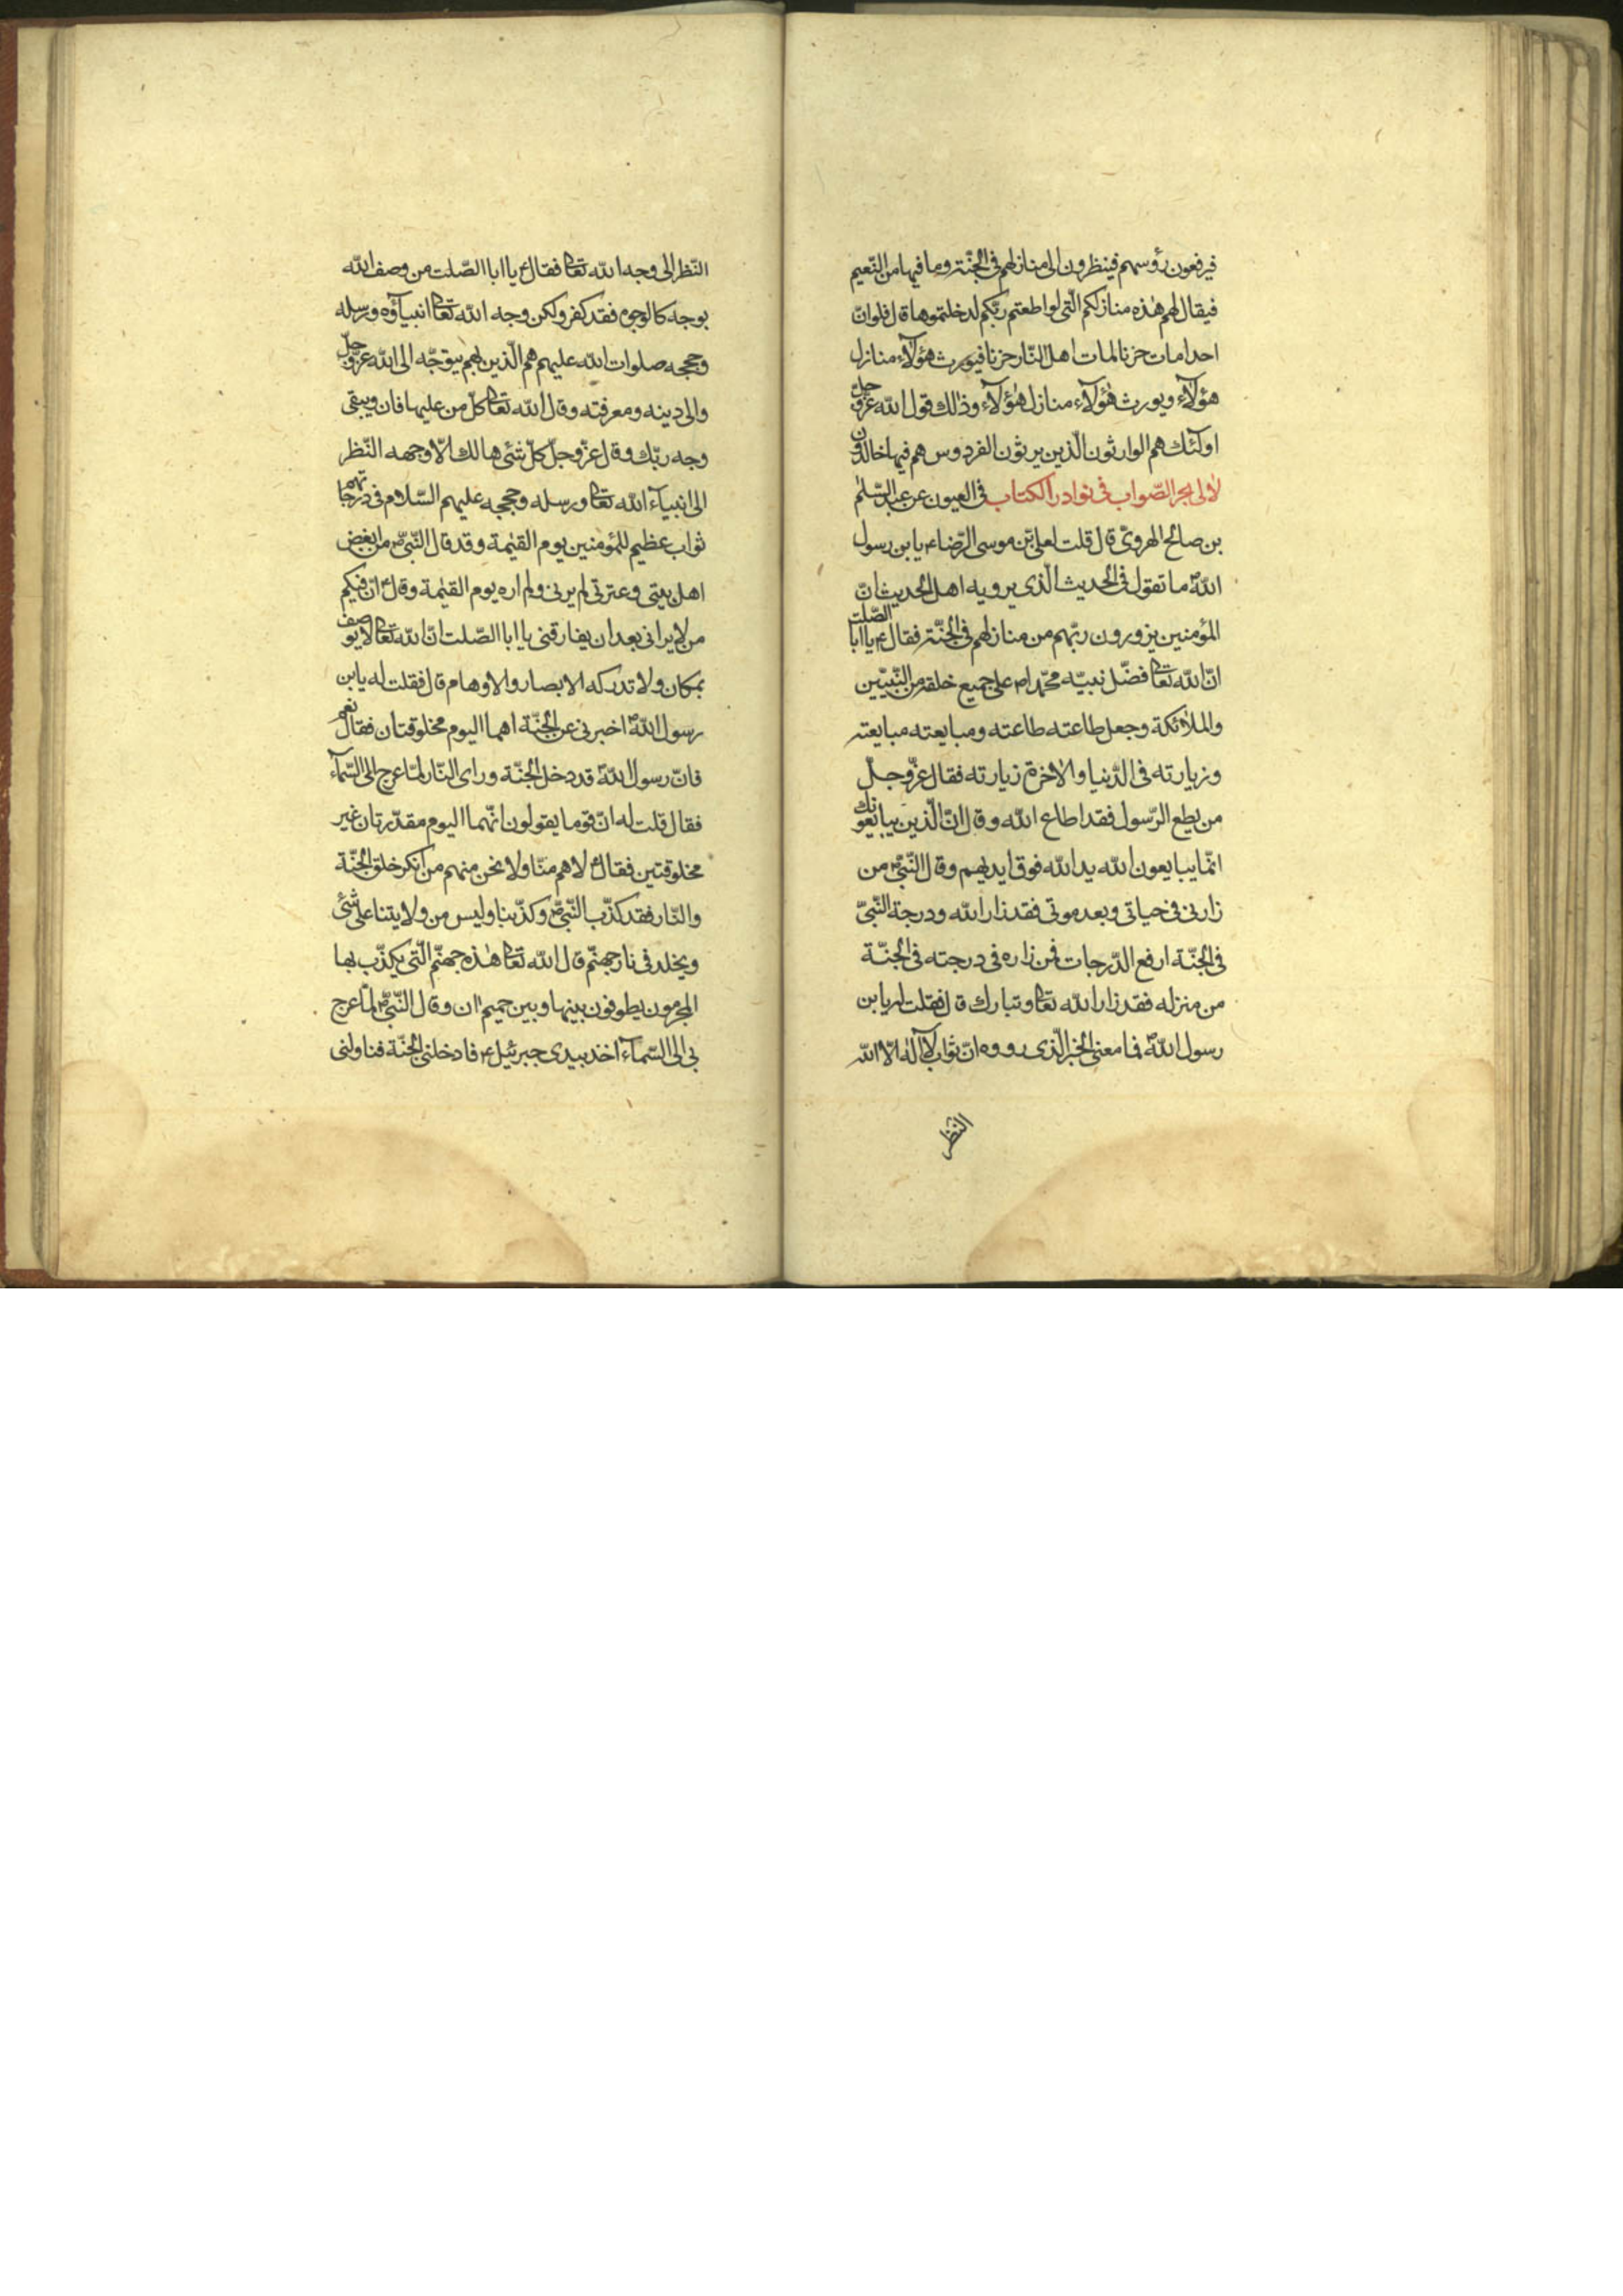 فيرفعون رؤسهم فينظرون الى منازلهم فى الجنّة وما فيها من النّعيم
فيقال لهم هذه منازلكم الّتى لو اطعتم ربّكم لدخلتموها قال فلو انّ
احدا مات حزنا لمات اهل النّار حزنا فيورث هؤلآء منازل
هؤلآء ويورث هؤلآء منازل هؤلآء وذلك قول الله عزّ وجلّ
اولئك هم الوارثون الّذين يرثون الفردوس هم فيها خالدون
لالى بحر الصّواب فى نوادر الكتاب فى العيون عن عبد السّلم
بن صالح الهروىّ قال قلت لعلىّ بن موسى الرّضاء ع يا بن رسول
اللهص ما تقول فى الحديث الّذى يرويه اهل الحديث انّ
المؤمنين يزورون ربّهم من منازلهم فى الجنّة فقال ع يا ابا الصّلت
انّ الله تعالى فضّل نبيّه محمّدا ص على جميع خلقه من النّبيّين
والملائكة وجعل طاعته طاعته ومبايعته مبايعته
وزيارته فى الدّنيا والاخرة زيارته فقال عزّ وجلّ
من يطع الرّسول فقد اطاع الله وقال انّ الّذين يبايعونك
انّما يبايعون الله يد الله فوق ايديهم وقال النّبىّ ص من
زارنى فى حياتى وبعد موتى فقد زار الله ودرجة النّبىّ
فى الجنّة ارفع الدّرجات فمن زاره فى درجته فى الجنّة
من منزله فقد زار الله تعالى وتبارك قال فقلت له يا بن
رسول اللهص فما معنى الخبر الّذى رووه انّ ثواب لا آله الّا الله
النّظر
النّظر الى وجه الله تعالى فقال ع يا ابا الصّلت من وصف الله
بوجه كالوجوه فقد كفر ولكن وجه الله تعالى انبيآؤه ورسله
وحججه صلوات الله عليهم هم الّذين بهم يتوجّه الى الله عزّ وجلّ
والى دينه ومعرفته وقال الله تعالى كلّ من عليها فان ويبقى
وجه ربّك وقال عزّ وجلّ كلّ شئ هالك الّا وجهه النّظر
الى انبيآء الله تعالى ورسله وحججه عليهم السّلام فى درجاتهم
ثواب عظيم للمؤمنين يوم القيمة وقد قال النّبىّ ص من ابغض
اهل بيتى وعترتى لم يرنى ولم اره يوم القيمة وقال ع انّ فيكم
من لا يرانى بعد ان يفارقنى يا ابا الصّلت انّ الله تعالى لا يوصف
بمكان ولا تدركه الابصار والاوهام قال فقلت له يا بن
رسول اللهص اخبرنى عن الجنّة اهما اليوم مخلوقتان فقال نعم
فانّ رسول اللهص قد دخل الجنّة وراى النّار لمّا عرج الى السّمآء
فقال قلت له انّ قوما يقولون انّهما اليوم مقدّرتان غير
مخلوقتين فقال ع لا هم منّا ولا نحن منهم من انكر خلق الجنّة
والنّار فقد كذّب النّبىّ ص وكذّبنا وليس من ولايتنا على شئ
ويخلد فى نار جهنّم قال الله تعالى هذه جهنّم الّتى يكذّب بها
المجرمون يطوفون بينها وبين حميم ان وقال النّبىّ ص لمّا عرج
بى الى السّمآء اخذ بيدى جبرئيل ع فادخلنى الجنّة فناولنى